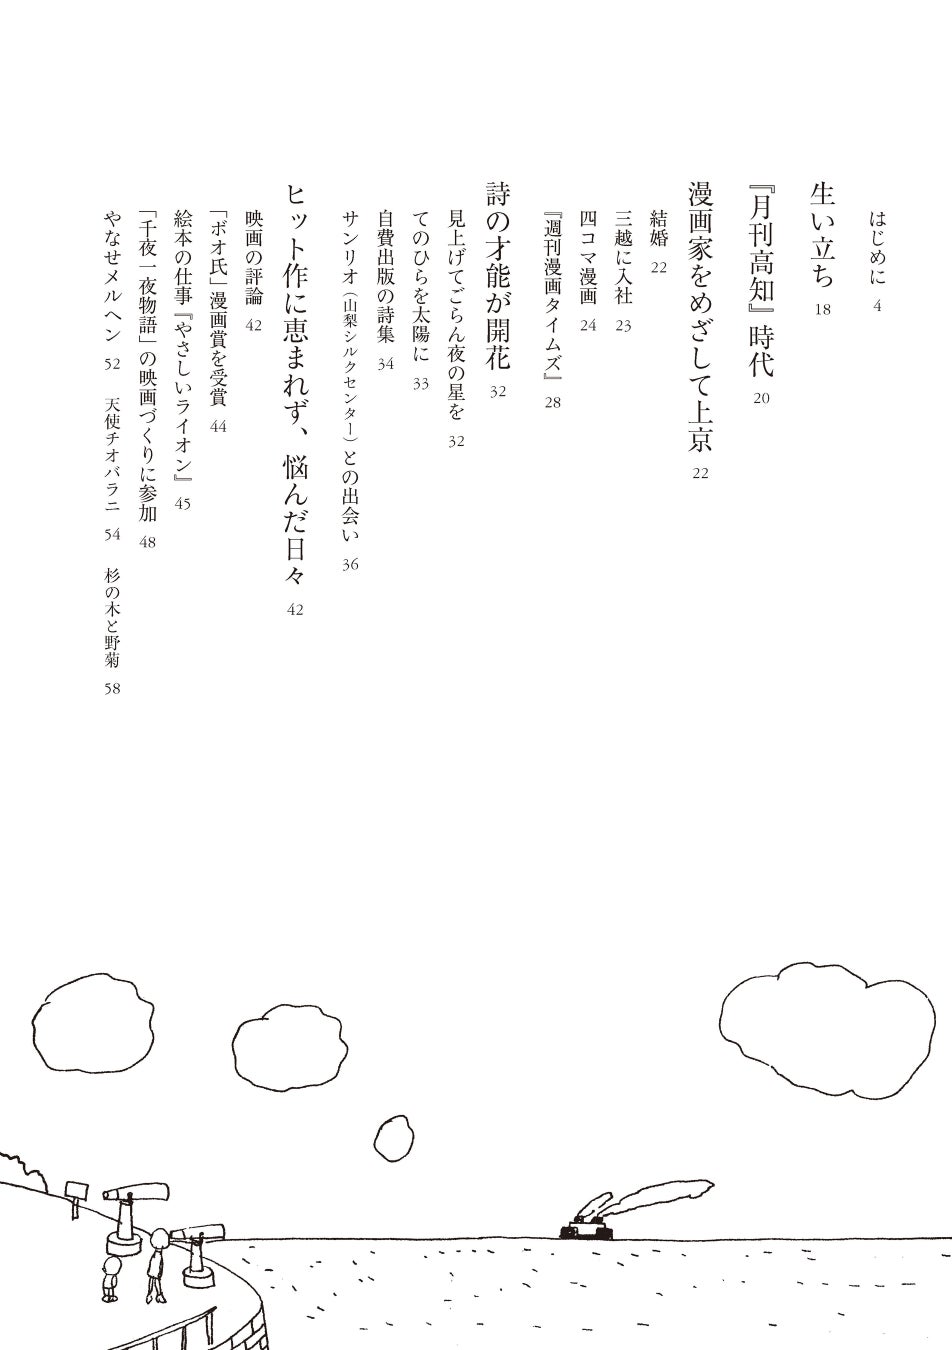 はじめに 4
生い立ち 18
『月刊高知』時代 20
漫画家をめざして上京 22
結婚 22
三越に入社 23
四コマ漫画 24
『週刊漫画タイムズ』 28
詩の才能が開花 32
見上げてごらん夜の星を 32
てのひらを太陽に 33
自費出版の詩集 34
サンリオ（山梨シルクセンター）との出会い 36
ヒット作に恵まれず、悩んだ日々 42
映画の評論 42
「ボオ氏」漫画賞を受賞 44
絵本の仕事『やさしいライオン』 45
「千夜一夜物語」の映画づくりに参加 48
やなせメルヘン 52 天使チオバラニ 54 杉の木と野菊 58